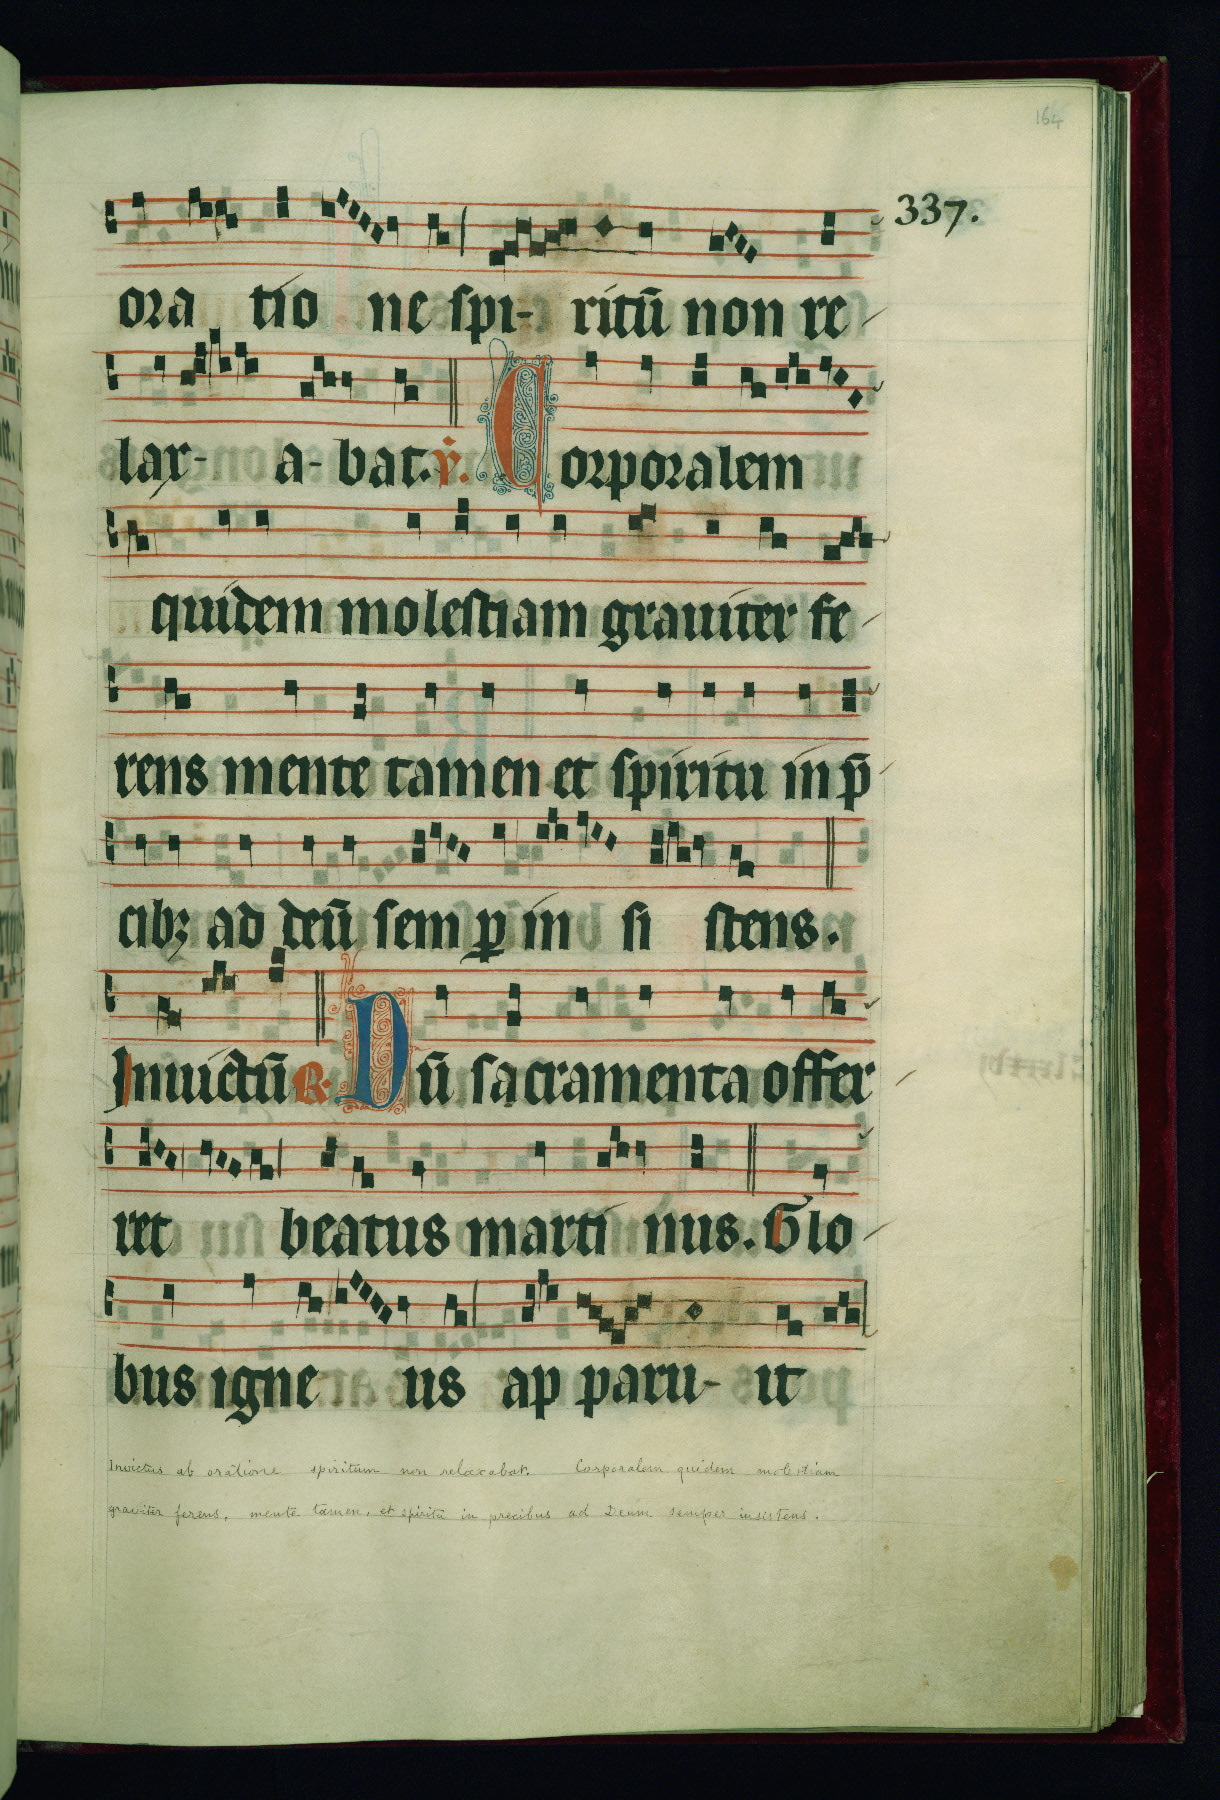 164
337.
ora tio ne spi- ritū non re
lax- a- bat. ℣. Corporalem
quidem molestiam grauiter fe
rens mente tamen et spiritu in p̄
cibꝫ ad deū semꝑ in si stens.
Inuictū ℟. Dū sacramenta offer
ret beatus marti nus. Glo
bus igne us ap paru- it
Invictus ab oratione spiritum non relaxabat. Corporalem quidem molestiam
graviter ferens, mente tamen, et spiritu in precibus ad Deum semper insistens.